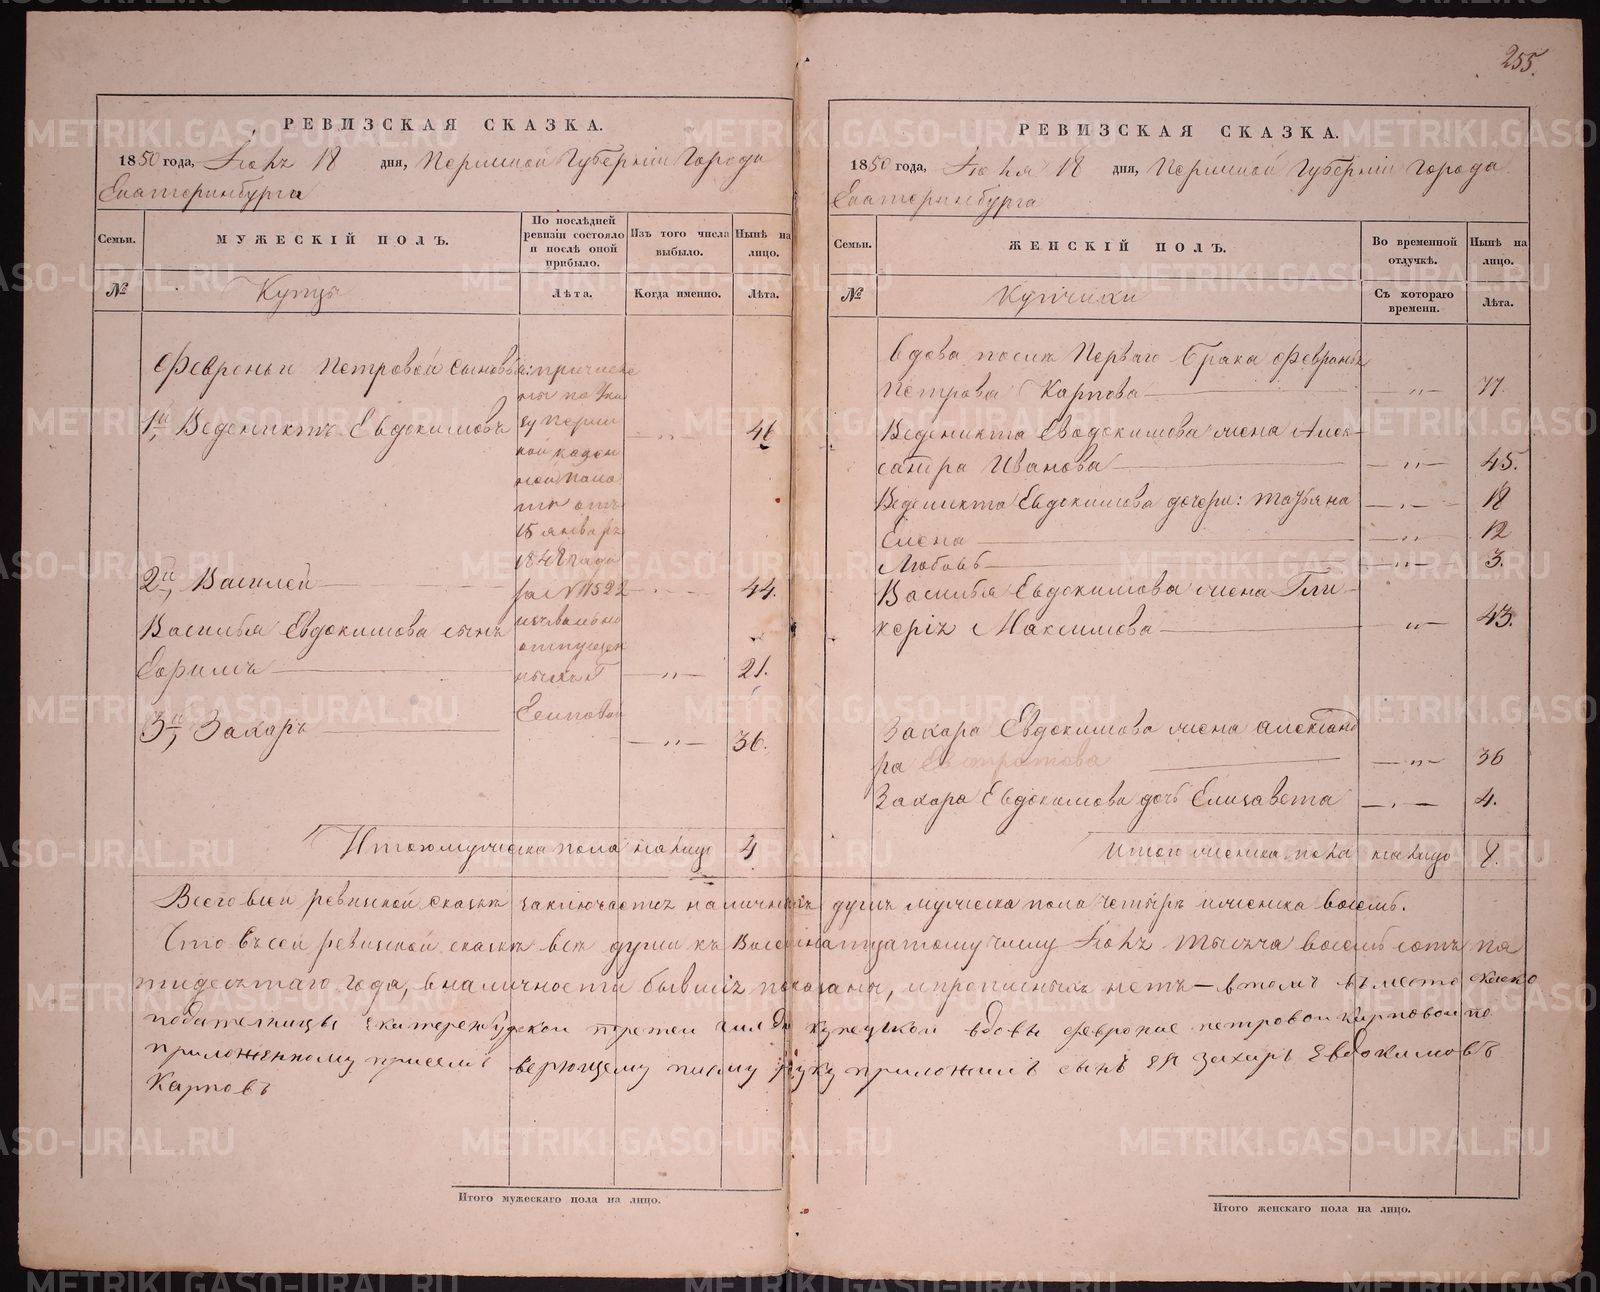 255.
РЕВИЗСКАЯ СКАЗКА.
1850 года, Іюня 18 дня, Пермской Губерніи Города
Екатеринбурга
Семьи.
МУЖЕСКІЙ ПОЛЪ.
По послѣдней
ревизіи состояло
и послѣ оной
прибыло.
Изъ того числа
выбыло.
Нынѣ на
лицо.
№
Купцы
Лѣта.
Когда именно.
Лѣта.
Февроньи Петровой сыновья: причисле
ны по Ука
1й, Веденихтъ Евдокимовъ зу Перм — „ — 46
ской казен
ной пала
ты отъ
15 января
1848 года
2й, Василей — за № 11522 — „ — 44.
Василья Евдокимова сынъ изъ вольно
отпущен
Ефимъ — ныхъ Г — „ — 21.
Есиповой
3й, Захаръ — „ — 36.
Итого мужеска пола на лицо 4
РЕВИЗСКАЯ СКАЗКА.
1850 года, Іюня 18 дня, Пермской Губерніи Города
Екатеринбурга
Семьи.
ЖЕНСКІЙ ПОЛЪ.
Во временной
отлучкѣ.
Нынѣ на
лицо.
№
Купчихи
Съ котораго
времени.
Лѣта.
Вдова послѣ Перваго брака Февронья
Петрова Карпова — „ — 77.
Веденикта Евдокимова жена Алек-
сандра Иванова — „ — 45.
Веденикта Евдокимова дочери: Татьяна — „ — 18
Елена — „ — 12
Любовь — „ — 3.
Василья Евдокимова жена Гли-
керія Максимова — „ — 43.
Захара Евдокимова жена Александ
ра — „ — 36
Захара Евдокимова дочь Елисавета — „ — 4.
Итого женска пола на лицо 8.
Всего въ сей ревизской сказкѣ заключается наличныхъ душъ мужеска пола четыре и женска восемь.
Что въ сей ревизской сказкѣ всѣ души къ Восемнатцатому числу Іюня тысяча восемь сотъ пя
тидесятаго года, в наличности бывшія показаны, и прописныхъ нетъ — в томъ въ место
подательницы Екатеренбурской третей гилди купецкой вдовы Февроние Петровой Карповой по
приложенному присемъ верющему писму руку приложилъ сынъ ея Захаръ Евдокимовъ
Карповъ
Итого мужескаго пола на лицо.
Итого женскаго пола на лицо.
METRIKI.GASO-URAL.RU